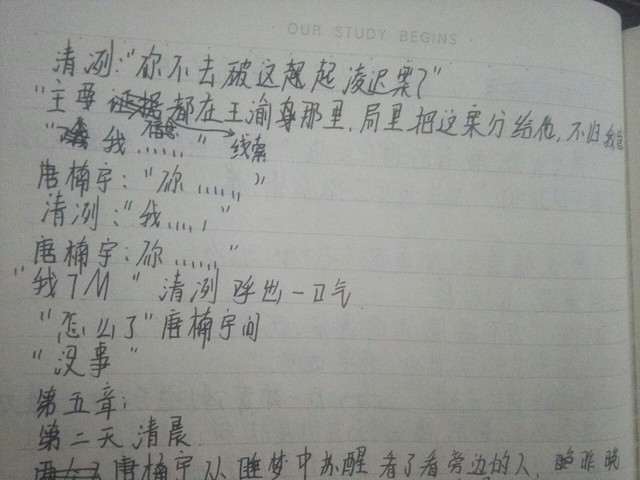 OUR STUDY BEGINS
清冽:"你不去破这起凌迟案了"
"主要证据都在王渝那里,局里把这案分给他,不归我
我……"
线索
唐楠宇:"你……"
清冽:"我……"
唐楠宇:你……"
"我TM"清冽呼出一口气
"怎么了"唐楠宇问
"没事"
第五章:
第二天清晨
唐楠宇从睡梦中苏醒 看了看旁边的人, 昨晚